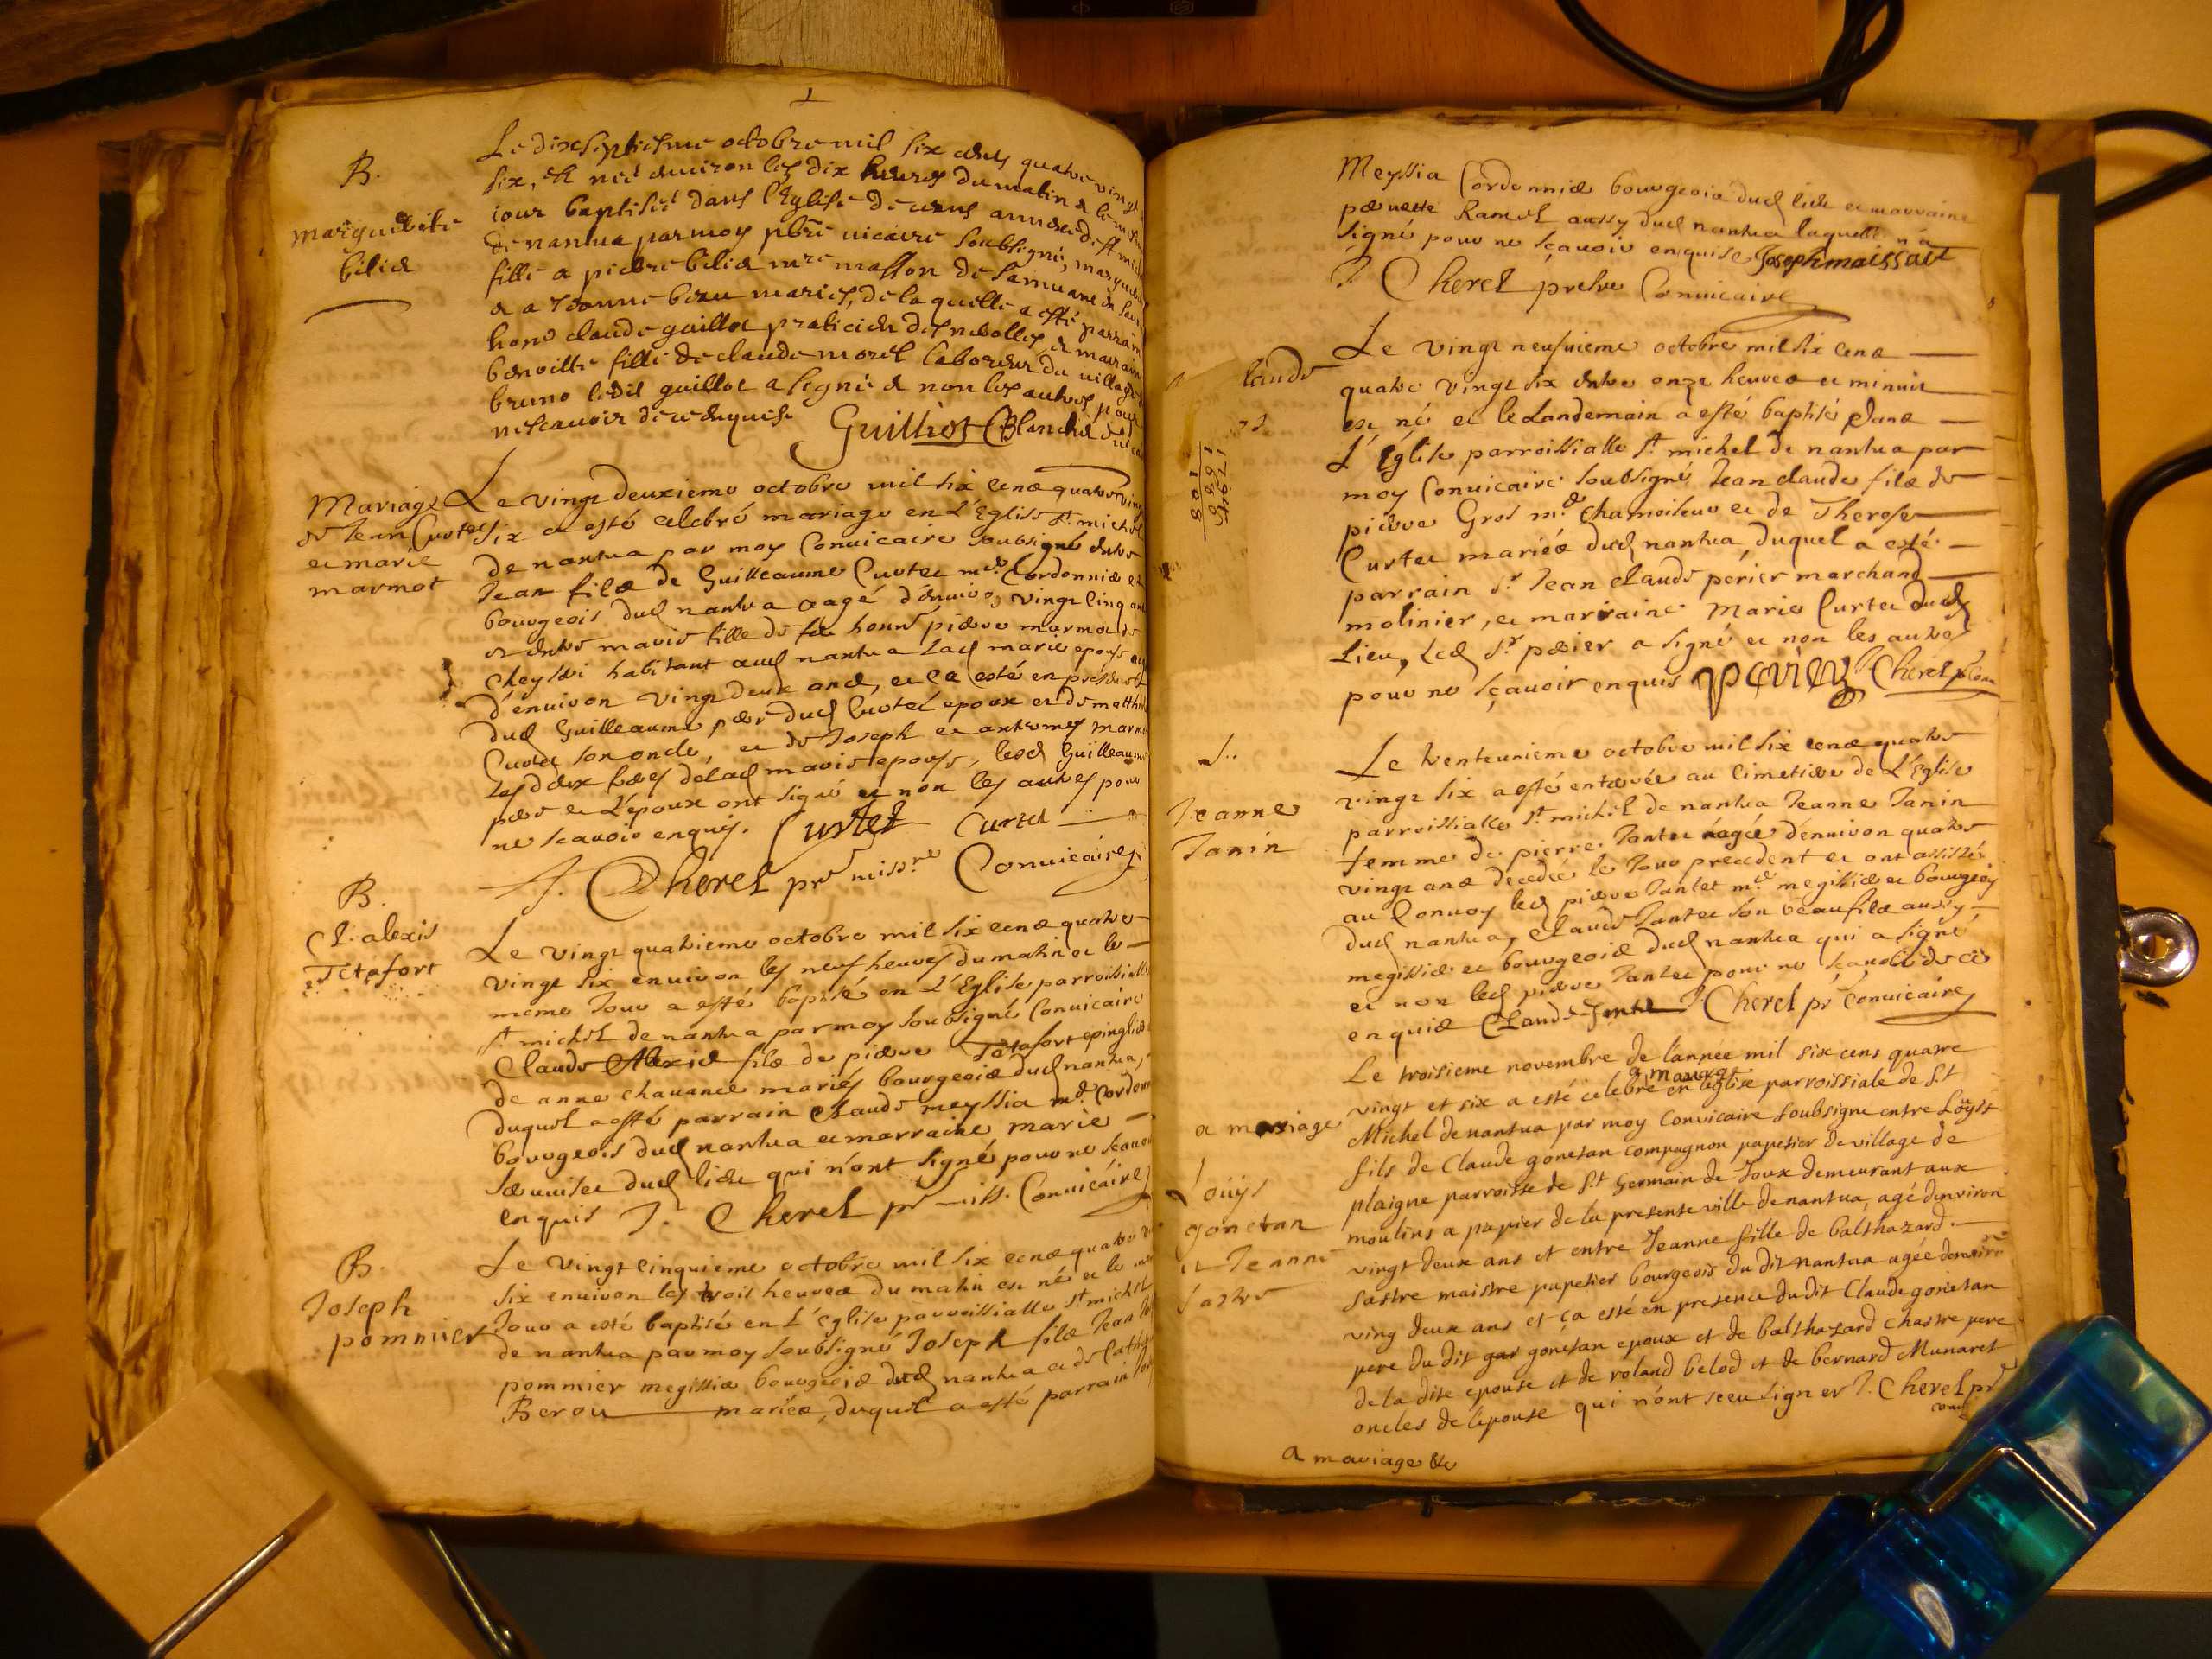 B.
margueritte
bilia
Le dixseptiesme octobre mil six cents quatre vingt
six, est née environ les dix heures du matin & le mesme
iour baptisée dans l'Eglise de ceans annexe de st mich
de nantua par moy pbre vicaire soubsigné, marguer
fille a pierre bilia mre masson de samuane en sau
& a Jeanne beau mariés, de laquelle a esté parrain
hono claude guillot praticien des nerolles & marrain
benoitte fille de claude morel laboureur du village
bruno ledit guillot a signé & non les autres pour
ne scavoir de ce enquise
Guilliot Blanchet vicai
Mariage
de Jean Curtet
et marie
marmot
Le vingt deuxieme octobre mil six cens quatre vingt
six a esté celebré mariage en L'Eglise st michel
de nantua par moy Convicaire soubsigné entre
Jean fils de Guilleaume Curtet md. Cordonnier et
bourgeois dud nantua aagé d'enuiron vingt cinq ans
et entre marie fille de feu honn pierre marmot de
cheysseri habitant aud nantua lad marie epouse aag
d'enuiron vingt deux ans, et ce a esté en presence
dud Guilleaume pere dud Curtet epoux et de matthi
Curtet son oncle, et de Joseph et anthoine marmo
les deux freres de lad marie epouse, lesd Guilleaume
pere et l'epoux ont signé et non les autres pour
ne scauoir enquis. Curtet Curtet
J. Cherel pre miss.re Convicaire
B.
Cl. alexis
Tetafort
Le vingt quatrieme octobre mil six cens quatre
vingt six enuiron les neuf heures du matin et le
meme Jour a esté baptisé en L'Eglise parroissialle
st michel de nantua par moy soubsigné Convicaire
Claude Alexis fils de pierre Tetafort epinglier
de anne chauance mariés bourgeois dud nantua,
duquel a esté parrain Claude meyssia md. Cordonn
bourgeois dud nantua et marraine marie
dud lieu qui n'ont signé pour ne scauoir
enquis J. Cherel pr miss. Convicaire
B.
Joseph
pommier
Le vingt cinquieme octobre mil six cens quatre vi
six enuiron les trois heures du matin est né et le me
Jour a esté baptisé en L'Eglise parroissialle st michel
de nantua par moy soubsigné Joseph fils Jean
pommier megissier bourgeois dud nantua et de Cath
Berou mariés, duquel a esté parrain Jos
Meyssia Cordonnier bourgeois dud lieu et marraine
pernette Ramel aussy dud nantua laquelle n'a
signé pour ne sçavoir enquise Joseph maissiat
J. Cherel prebre Convicaire
laude
Le vingt neufuieme octobre mil six cens
quatre vingt six entre onze heures et minuit
est né et le Landemain a esté baptisé dans
L'Église parroissialle st michel de nantua par
moy Convicaire soubsigné Jean claude fils de
pierre Gros md. chamoiseur et de Therese
Curtet mariés dud nantua, duquel a esté
parrain sr. Jean claude périer marchand
molinier, et marraine Marie Curtet dud
Lieu, Led sr perier a signé et non les autres
pour ne sçauoir enquis perier J. Cherel pr con
S..
Jeanne
Janin
Le trenteunieme octobre mil six cens quatre
vingt six a esté enterrée au cimetiere de L'Eglise
parroissialle st michel de nantua Jeanne Janin
femme de pierre Jantet aagée d'enuiron quatre
vingt ans decedée le Jour precedent et ont assisté
au Conuoy led pierre Jantet md. megissier et bourgeois
dud nantua, Claude Jantet son beaufils aussy
megissier et bourgeois dud nantua qui a signé
et non led pierre Jantet pour ne scauoir de ce
enquis Claude Jantet J. Cherel pr Convicaire
a mariage
Loüys
gonetan
et Jeanne
sastre
Le troisieme novembre de l'année mil six cens quatre
vingt et six a esté celebré en eglise parroissiale de St
a mariage
Michel de nantua par moy convicaire soubsigne entre Loÿs
fils de Claude gonetan compagnon papetier de village de
plaigne parroisse de St Germain de Joux demeurant aux
moulins a papier de la presente ville de nantua, agé denviron
vingt deux ans et entre Jeanne fille de balthazard
sastre maistre papetier bourgeois du dit nantua agée denviron
ving deux ans et ça esté en presence du dit Claude gonetan
pere du dit gonetan epoux et de balthazard chastre pere
de la dite epouse et de roland belod et de bernard Munaret
oncles de l'epouse qui n'ont sceu signer J. Cherel pr
a mariage &c